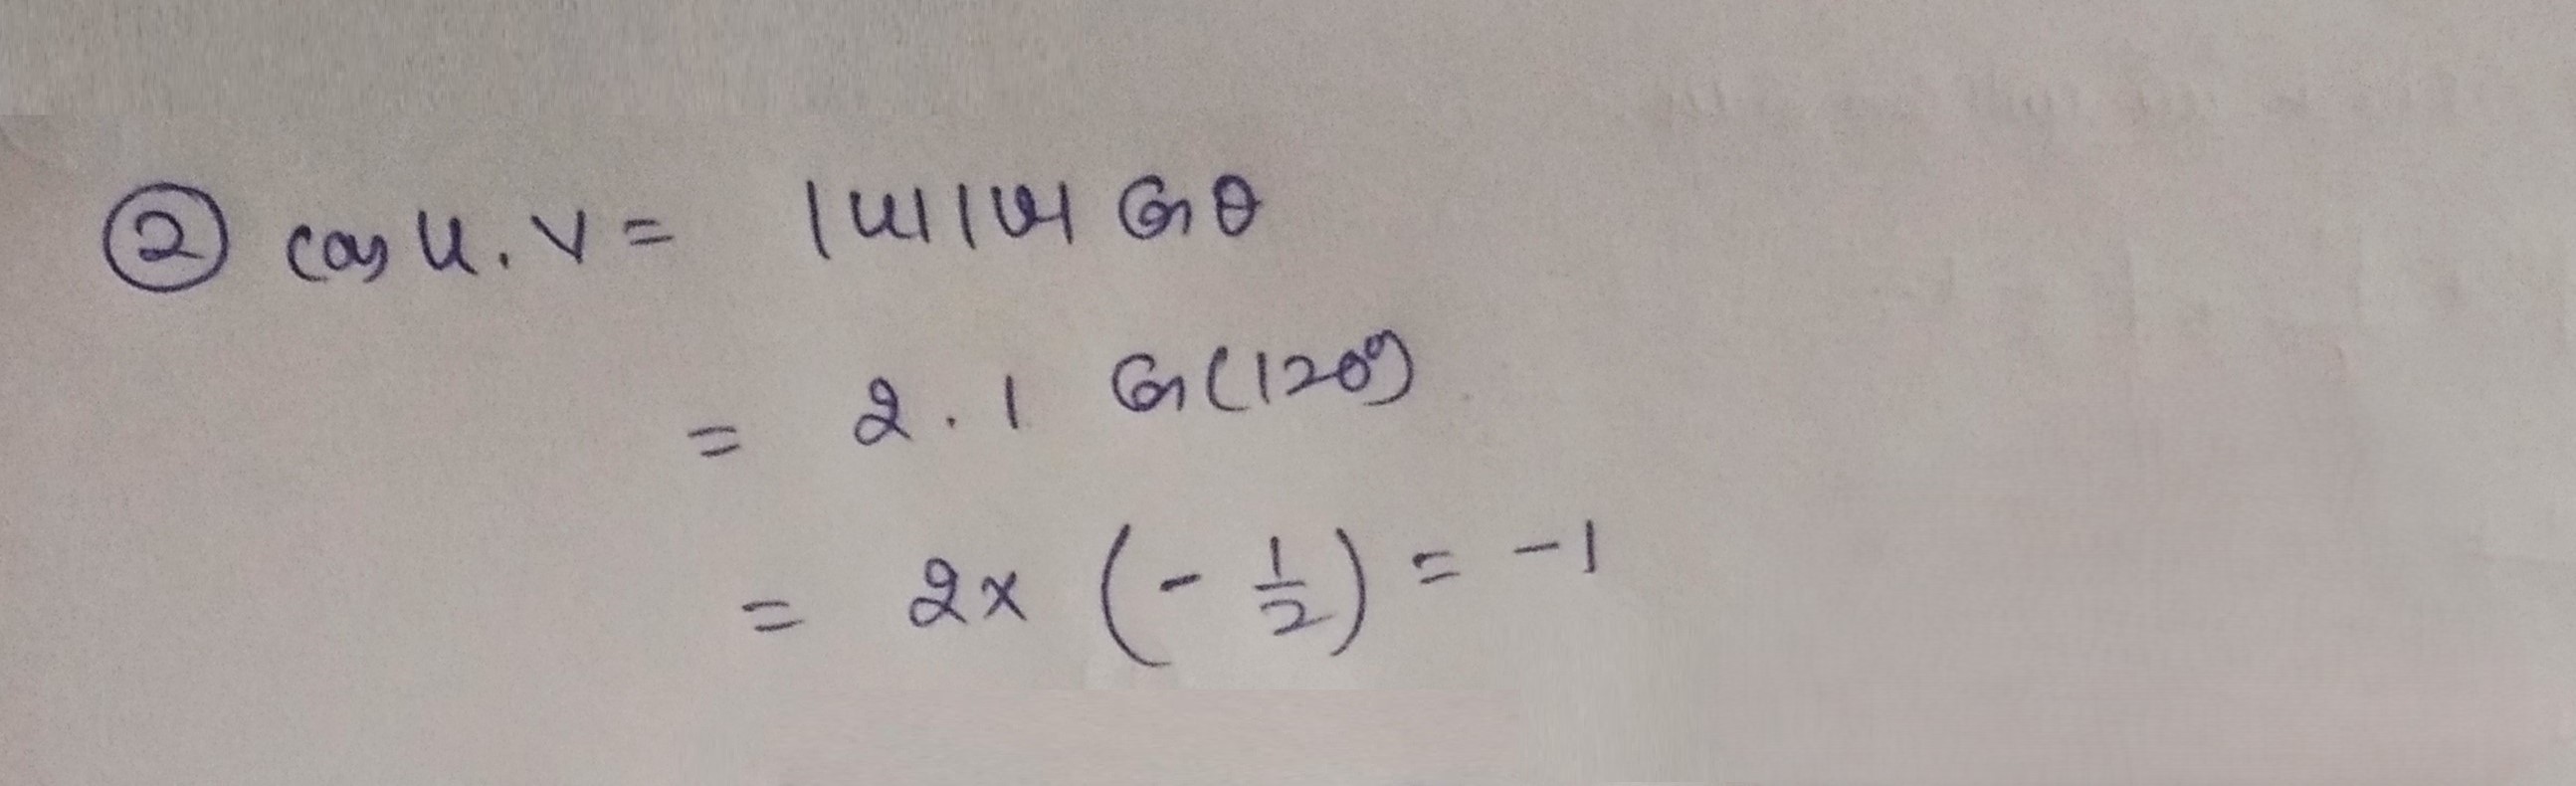 ② cos u . v = |u| |v| cos θ
= 2 . 1 cos (120°)
= 2 × (- 1/2) = -1